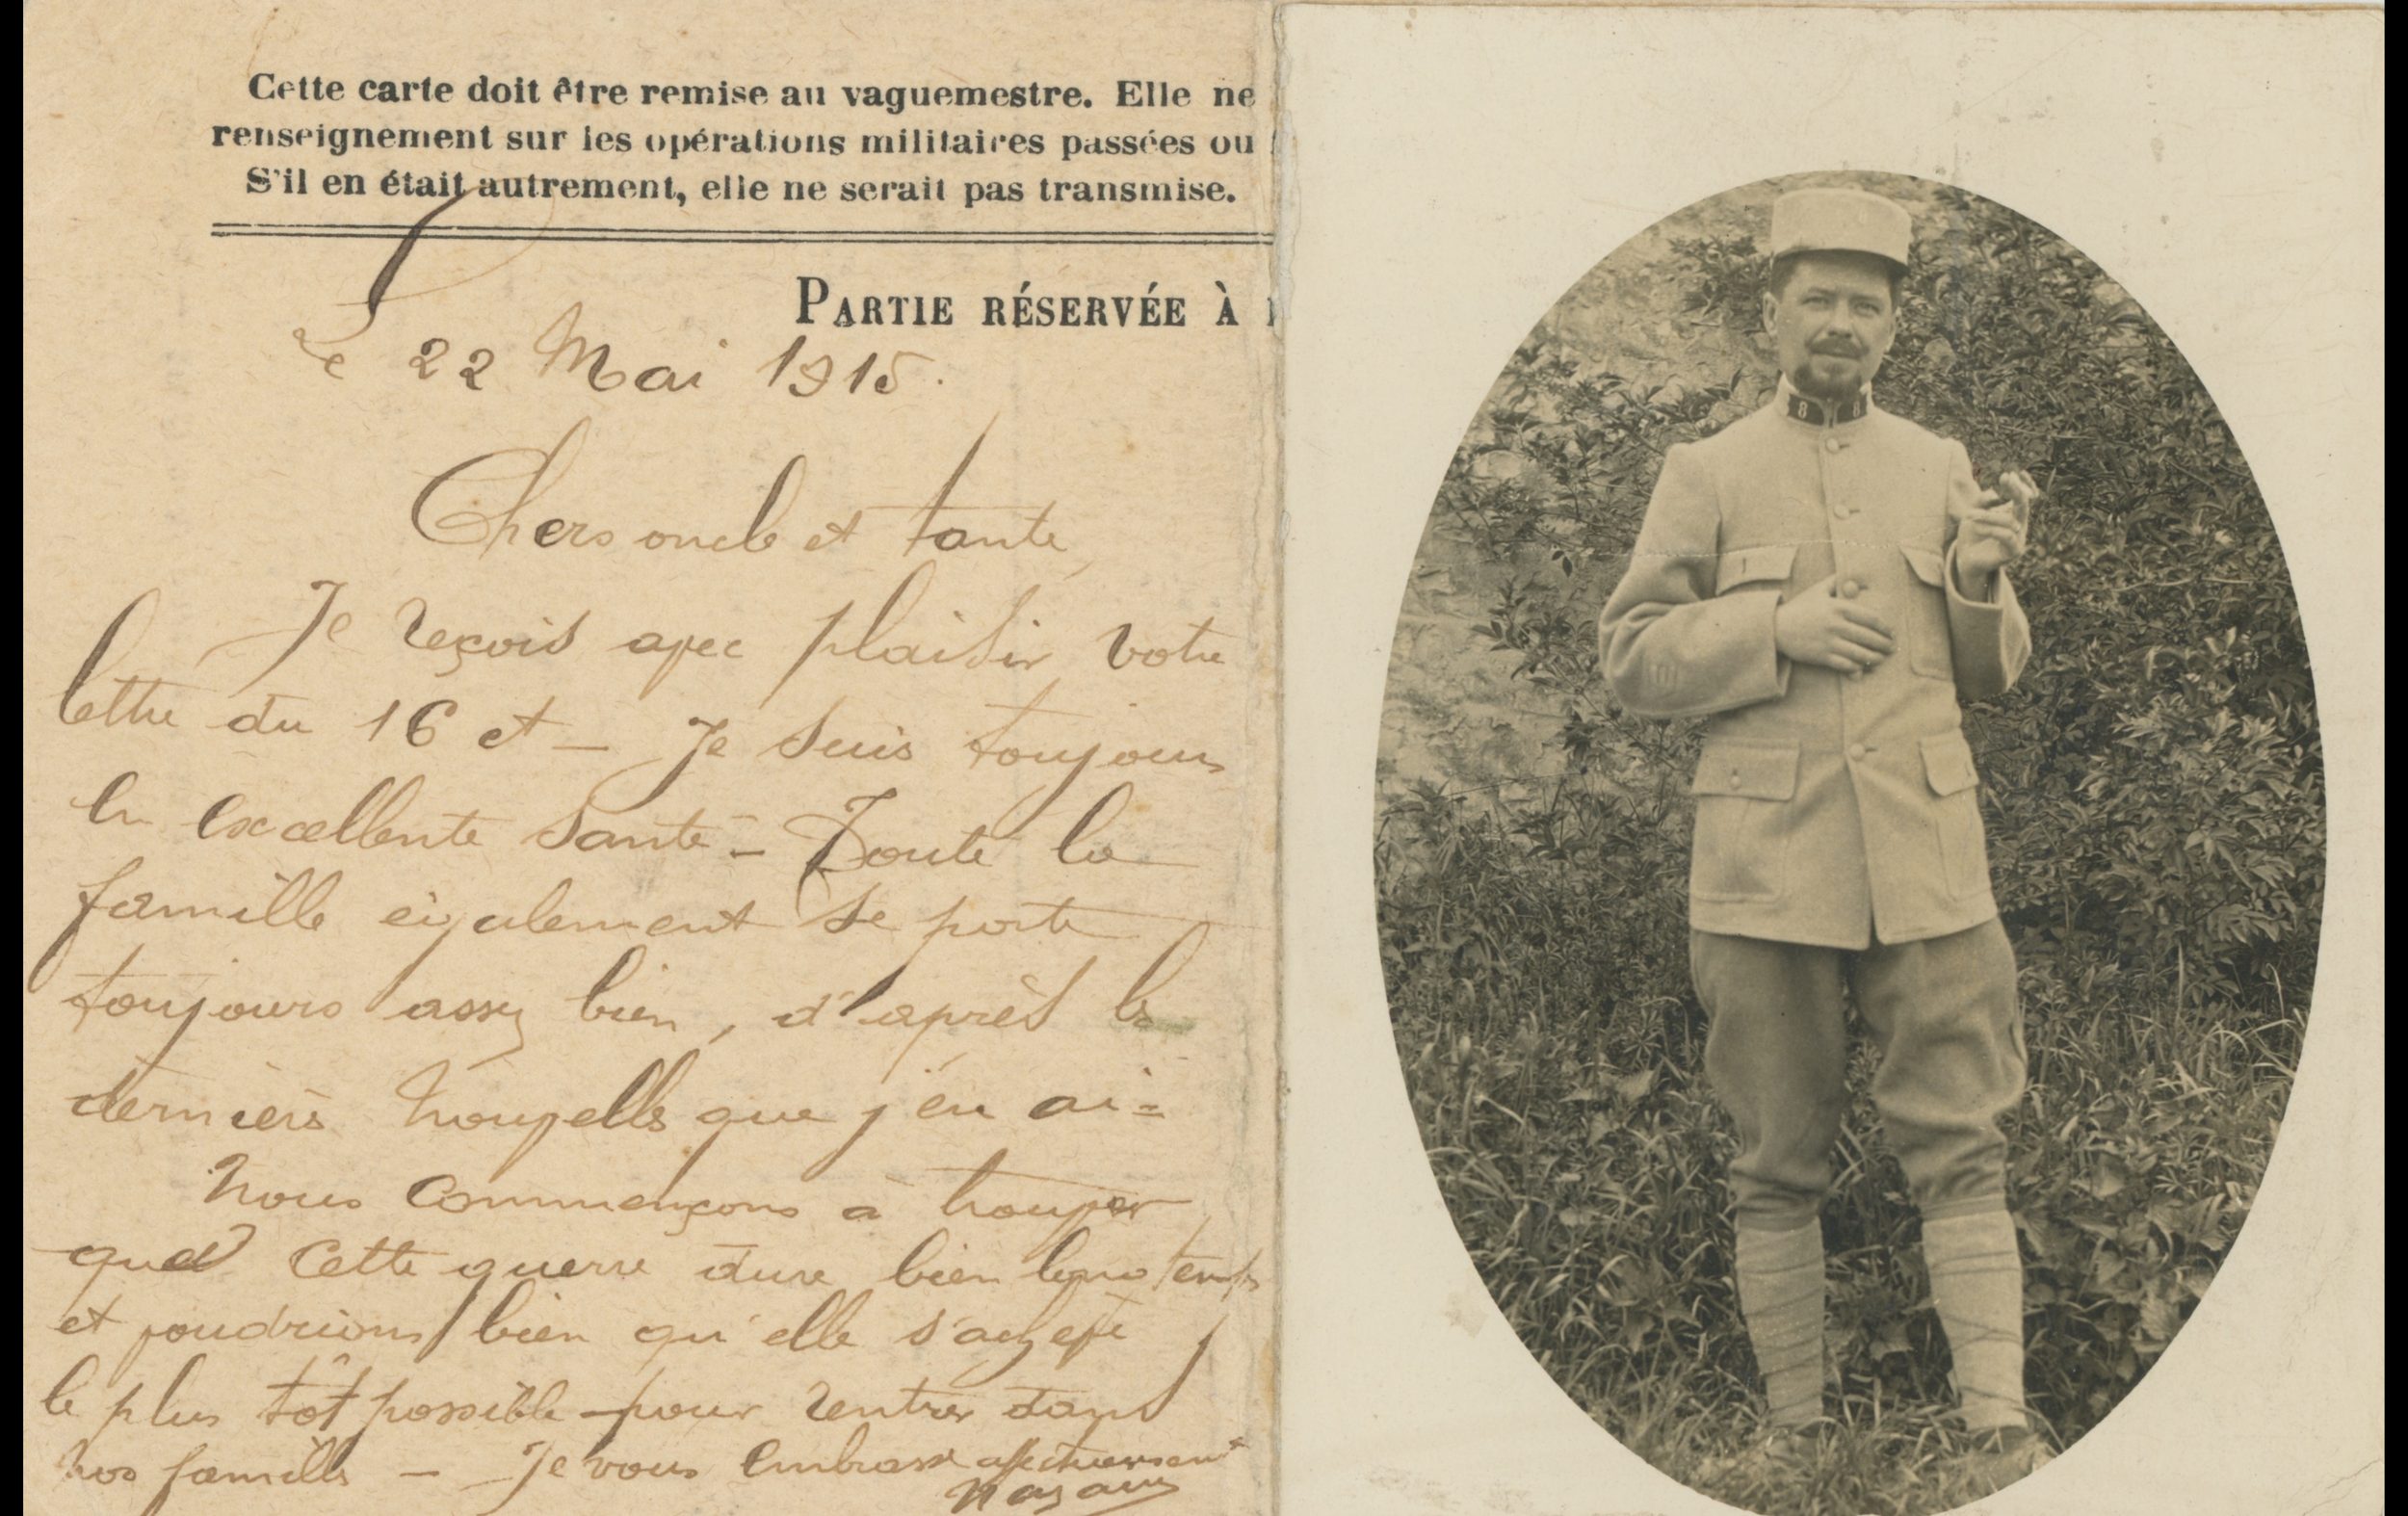 Cette carte doit être remise au vaguemestre. Elle ne
renseignement sur les opérations militaires passées ou
S'il en était autrement, elle ne serait pas transmise.
PARTIE RÉSERVÉE À
Le 22 Mai 1915.
Chers oncle et tante,
Je reçois avec plaisir votre
lettre du 16 ct – Je suis toujours
en excellente santé – Toute la
famille également se porte
toujours assez bien, d'après les
dernières nouvelles que j'en ai –
Nous commençons à trouver
que cette guerre dure bien longtemps
et voudrions bien qu'elle s'achève
le plus tôt possible pour rentrer dans
nos familles – Je vous embrasse affectueusement
8 8